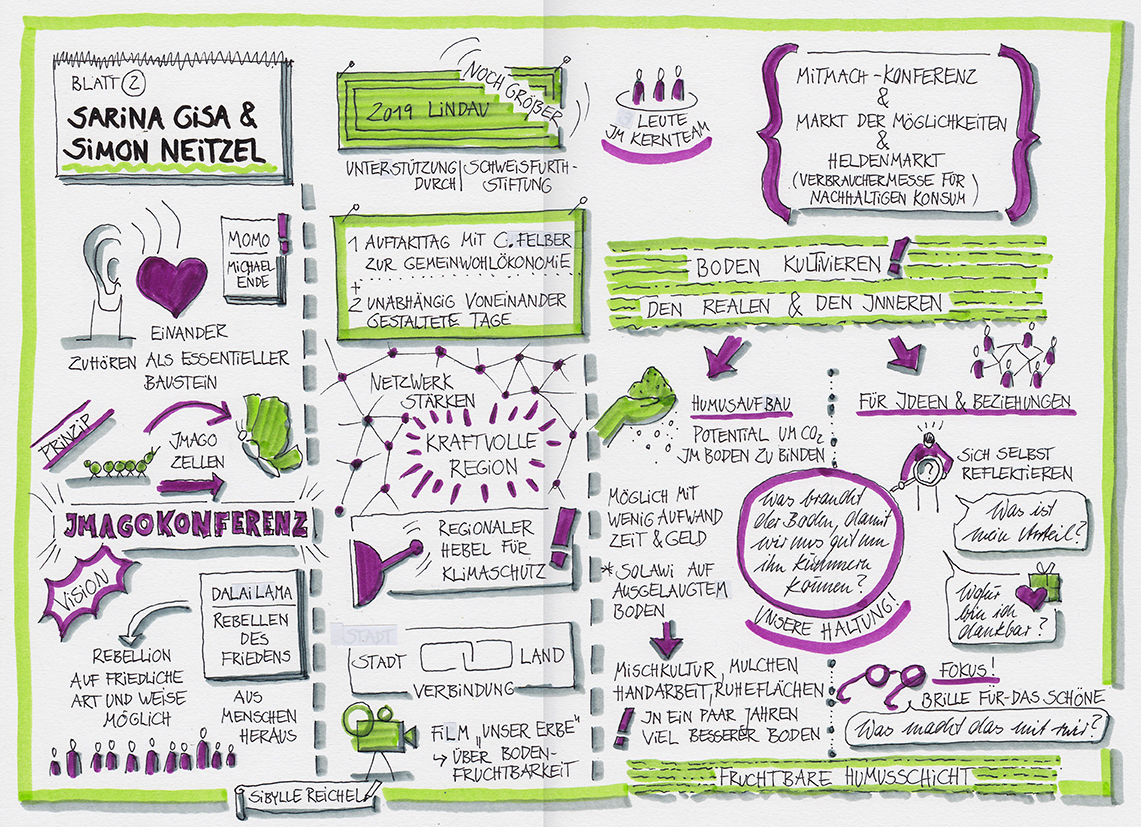 BLATT 2
SARINA GISA &
SIMON NEITZEL
MOMO
MICHAEL
ENDE
EINANDER
ZUHÖREN ALS ESSENTIELLER
BAUSTEIN
PRINZIP
JMAGO
ZELLEN
JMAGOKONFERENZ
VISION
DALAI LAMA
REBELLEN
DES
FRIEDENS
REBELLION
AUF FRIEDLICHE
ART UND WEISE
MÖGLICH
AUS
MENSCHEN
HERAUS
SIBYLLE REICHEL
2019 LINDAU
NOCH GRÖßER
UNTERSTÜTZUNG
DURCH
SCHWEISFURTH-
STIFTUNG
1 AUFTAKTTAG MIT C. FELBER
ZUR GEMEINWOHLÖKONOMIE
+
2 UNABHÄNGIG VONEINANDER
GESTALTETE TAGE
NETZWERK
STÄRKEN
KRAFTVOLLE
REGION
REGIONALER
HEBEL FÜR
KLIMASCHUTZ !
STADT
STADT LAND
VERBINDUNG
FILM "UNSER ERBE"
↳ ÜBER BODEN-
FRUCHTBARKEIT
LEUTE
JM KERNTEAM
MITMACH-KONFERENZ
&
MARKT DER MÖGLICHKEITEN
&
HELDENMARKT
(VERBRAUCHERMESSE FÜR
NACHHALTIGEN KONSUM)
BODEN KULTIVIEREN !
DEN REALEN & DEN JNNEREN
HUMUSAUFBAU
POTENTIAL UM CO2
JM BODEN ZU BINDEN
MÖGLICH MIT
WENIG AUFWAND
ZEIT & GELD
* SOLAWI AUF
AUSGELAUGTEM
BODEN
MISCHKULTUR, MULCHEN
HANDARBEIT, RUHEFLÄCHEN
! JN EIN PAAR JAHREN
VIEL BESSERER BODEN
Was braucht
der Boden, damit
wir uns gut um
ihn kümmern
können?
UNSERE HALTUNG!
FÜR JDEEN & BEZIEHUNGEN
?
SICH SELBST
REFLEKTIEREN
Was ist
mein Urteil?
Wofür
bin ich
dankbar?
FOKUS!
BRILLE FÜR DAS SCHÖNE
Was macht das mit mir?
FRUCHTBARE HUMUSSCHICHT